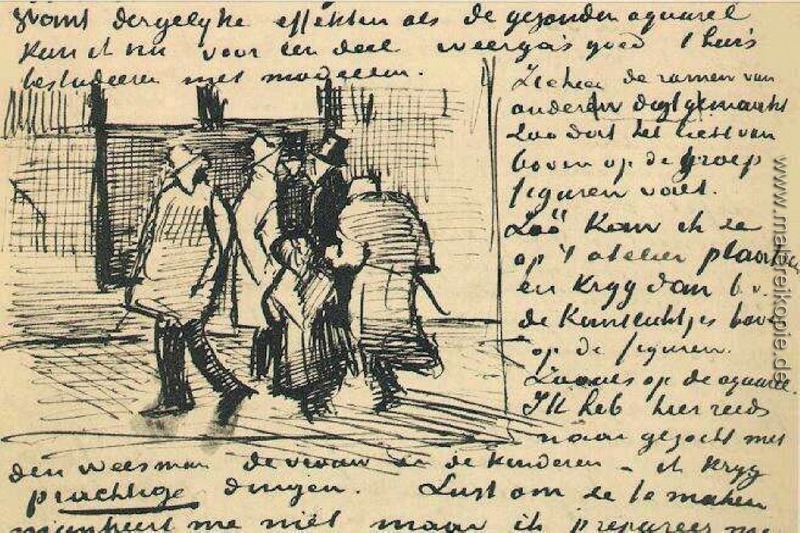 want dergelyke effekten als de gezonden aquarel
kan ik nu voor een deel weergaas goed thuis
bestudeeren met modellen.
Ik heb de ramen van
onderen digt gemaakt
zoodat het licht van
boven op de groep
figuren valt.
Zoo kan ik ze
op 't atelier plaatsen
en kryg dan b.v.
de kantlichtjes boven
op de figuren.
Zooals op de aquarel.
Ik heb hier reeds
naar gezocht met
den weesman de vrouw en de kinderen – ik kryg
prachtige dingen. Lust om ze te maken
mankeert me niet maar ik prepareer me
www.malereikopie.de